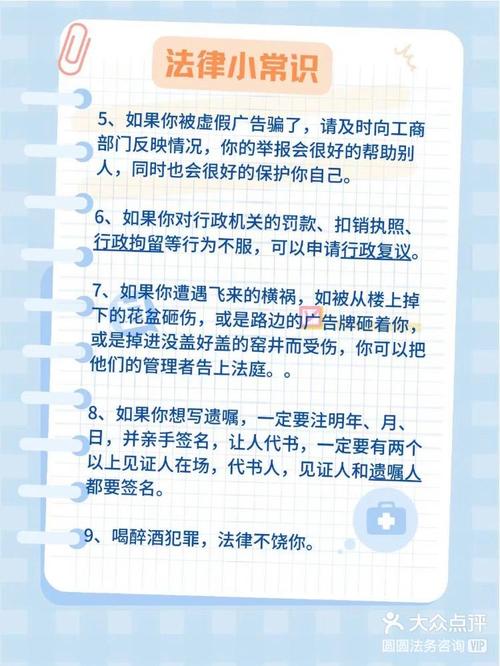 法律小常识
5、如果你被虚假广告骗了，请及时向工商
部门反映情况，你的举报会很好的帮助别
人，同时也会很好的保护你自己。
6、如果你对行政机关的罚款、扣销执照、
行政拘留等行为不服，可以申请行政复议。
7、如果你遭遇飞来的横祸，如被从楼上掉
下的花盆砸伤，或是路边的广告牌砸着你，
或是掉进没盖好盖的窑井而受伤，你可以把
他们的管理者告上法庭。。
8、如果你想写遗嘱，一定要注明年、月、
日，并亲手签名，让人代书，一定要有两个
以上见证人在场，代书人，见证人和遗嘱人
都要签名。
9、喝醉酒犯罪，法律不饶你。
大众点评
圆圆法务咨询 VIP